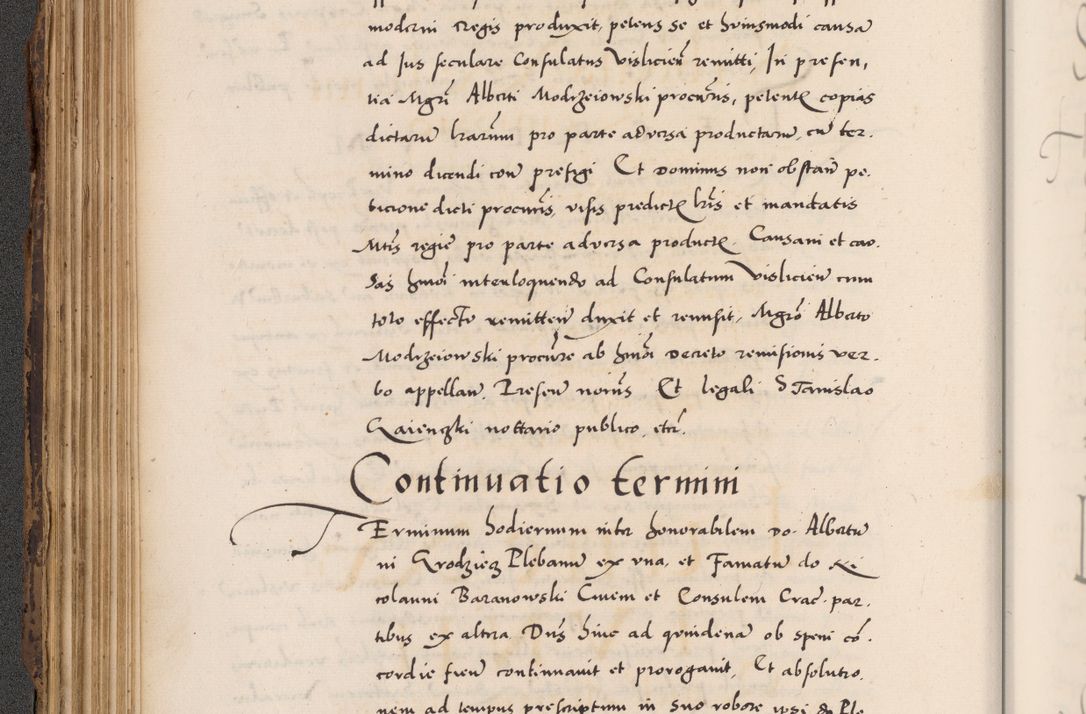 moderni Regis produxit, petens se et huiusmodi causa
ad Jus seculare Consulatus Vislicien remitti, In presen,
tia Mgri Alberti Modrzeiowski procuris, petente copias
dictaru lrarum pro parte adversa productaru, cu ter.
mino dicendi contra prefigi Et Dominus non obstan pe.
ticione dicti procuris, visis predictis lris et mandatis
Mtis regie pro parte adversa productis. Causam et cau.
sas hmoi interloquendo ad Consulatum Vislicien cum
toto effectu remitten duxit et remisit, Mgro Alberto
Modrzeiowski procure ab hmoi Decreto remissionis ver.
bo appellan. Presen notris Et legali Stanislao
nottario publico, etc.
Continuatio termini
Terminum hodiernum inter honorabilem do. Albertu
in Grodziecz Plebanu ex vna, et Famatu do Ni
colaum Baranowski Ciuem et Consulem Crac. par.
tibus ex altera Dns hinc ad quindena ob spem co.
cordie fien continuauit et prorogauit, Et absolutio.
nem ad tempus prescriptum in suo robore ipsi do Ple